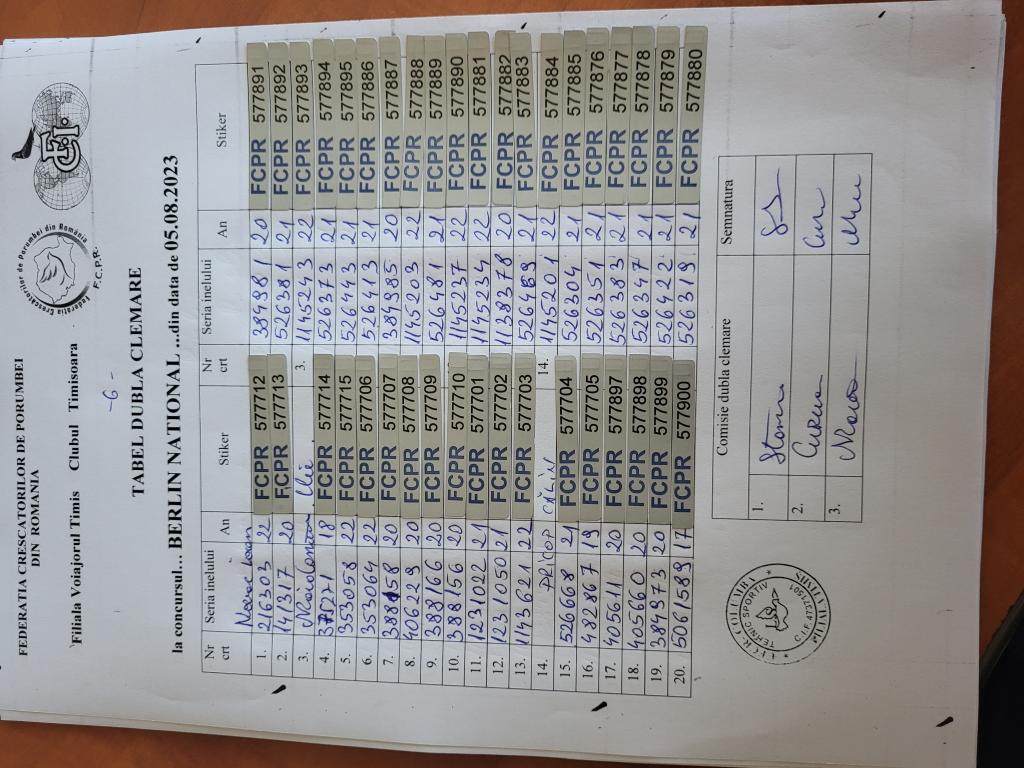 FEDERATIA CRESCATORILOR DE PORUMBEI
DIN ROMANIA
Federatia Crescatorilor de Porumbei din România
F.C.P.R.
Filiala Voiajorul Timis Clubul Timisoara
-6-
TABEL DUBLA CLEMARE
la concursul... BERLIN NATIONAL ....din data de 05.08.2023
Nr crt Seria inelului An Stiker Nr crt Seria inelului An Stiker
1. 216303 22 FCPR 577712 384981 20 FCPR 577891
2. 141317 20 FCPR 577713 526381 21 FCPR 577892
3. Ilie 3. 1145243 22 FCPR 577893
4. 18 FCPR 577714 526373 21 FCPR 577894
5. 353058 22 FCPR 577715 526443 21 FCPR 577895
6. 353064 22 FCPR 577706 526413 21 FCPR 577886
7. 388158 20 FCPR 577707 384985 20 FCPR 577887
8. 406229 20 FCPR 577708 1145203 22 FCPR 577888
9. 388166 20 FCPR 577709 526481 21 FCPR 577889
10. 388156 20 FCPR 577710 1145237 22 FCPR 577890
11. 1231022 21 FCPR 577701 1145234 22 FCPR 577881
12. 1231050 21 FCPR 577702 1138378 20 FCPR 577882
13. 1143621 22 FCPR 577703 526469 21 FCPR 577883
14. PRICOP CĂLIN 14. 1145201 22 FCPR 577884
15. 526668 21 FCPR 577704 526304 21 FCPR 577885
16. 482867 19 FCPR 577705 526351 21 FCPR 577876
17. 405611 20 FCPR 577897 526383 21 FCPR 577877
18. 405660 20 FCPR 577898 526347 21 FCPR 577878
19. 384973 20 FCPR 577899 526422 21 FCPR 577879
20. 5061589 17 FCPR 577900 526319 21 FCPR 577880
Comisie dubla clemare Semnatura
1.
2.
3.
TEHNIC SPORTIV